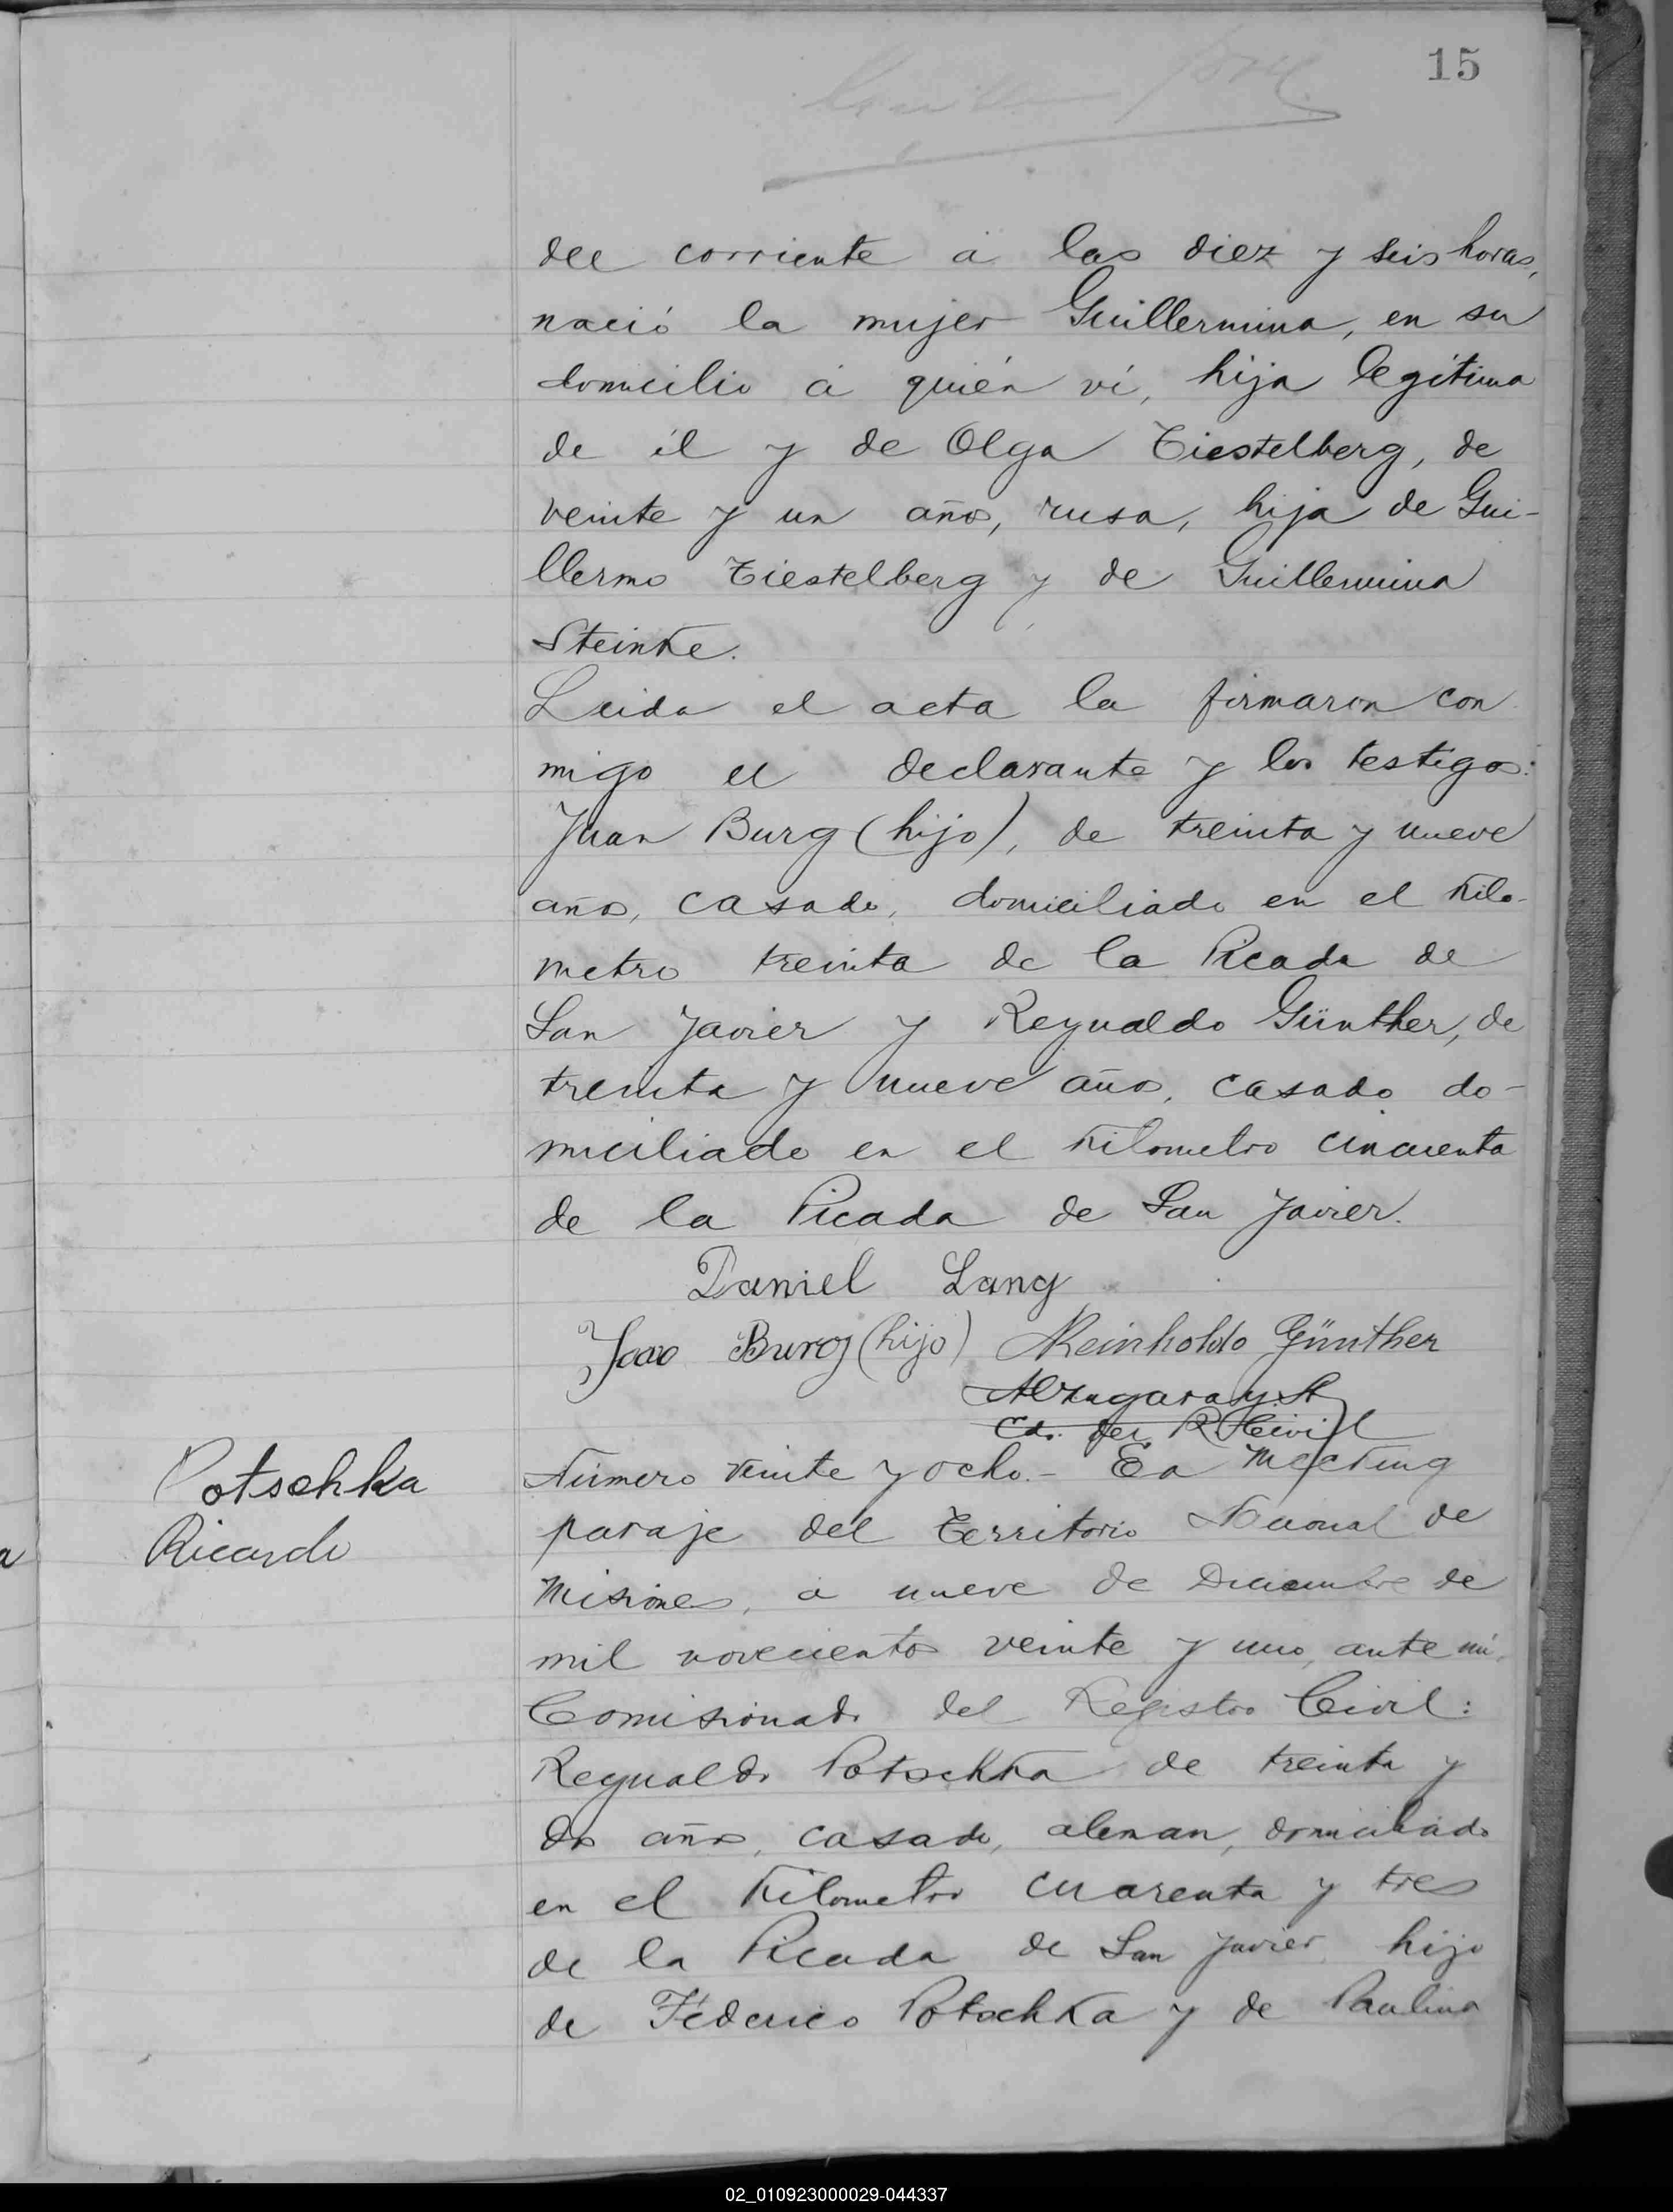 15
del corriente á las diez y seis horas,
nació la mujer Guillermina, en su
domicilio á quién ví, hija legítima
de él y de Olga Tiestelberg, de
veinte y un años, rusa, hija de Gui-
llermo Tiestelberg y de Guillermina
Steinke.
Leida el acta la firmaron con
migo el declarante y los testigos:
Juan Burg (hijo), de treinta y nueve
años, casado, domiciliado en el Kilo-
metro treinta de la Picada de
San Javier y Reynaldo Günther, de
treinta y nueve años, casado do-
miciliado en el Kilometro cincuenta
de la Picada de San Javier.
Daniel Lang
Joao Burg (hijo) Reinholdo Günther
Cdo. del R. Civil
Potschka
Ricardo
Número veinte y ocho.- En Mecking
paraje del Territorio Nacional de
Misiones, á nueve de Diciembre de
mil novecientos veinte y uno, ante mí,
Comisionado del Registro Civil:
Reynaldo Potschka de treinta y
dos años, casado, aleman, domiciliado
en el Kilometro cuarenta y tres
de la Picada de San Javier, hijo
de Federico Potschka y de Paulina
02_010923000029-044337